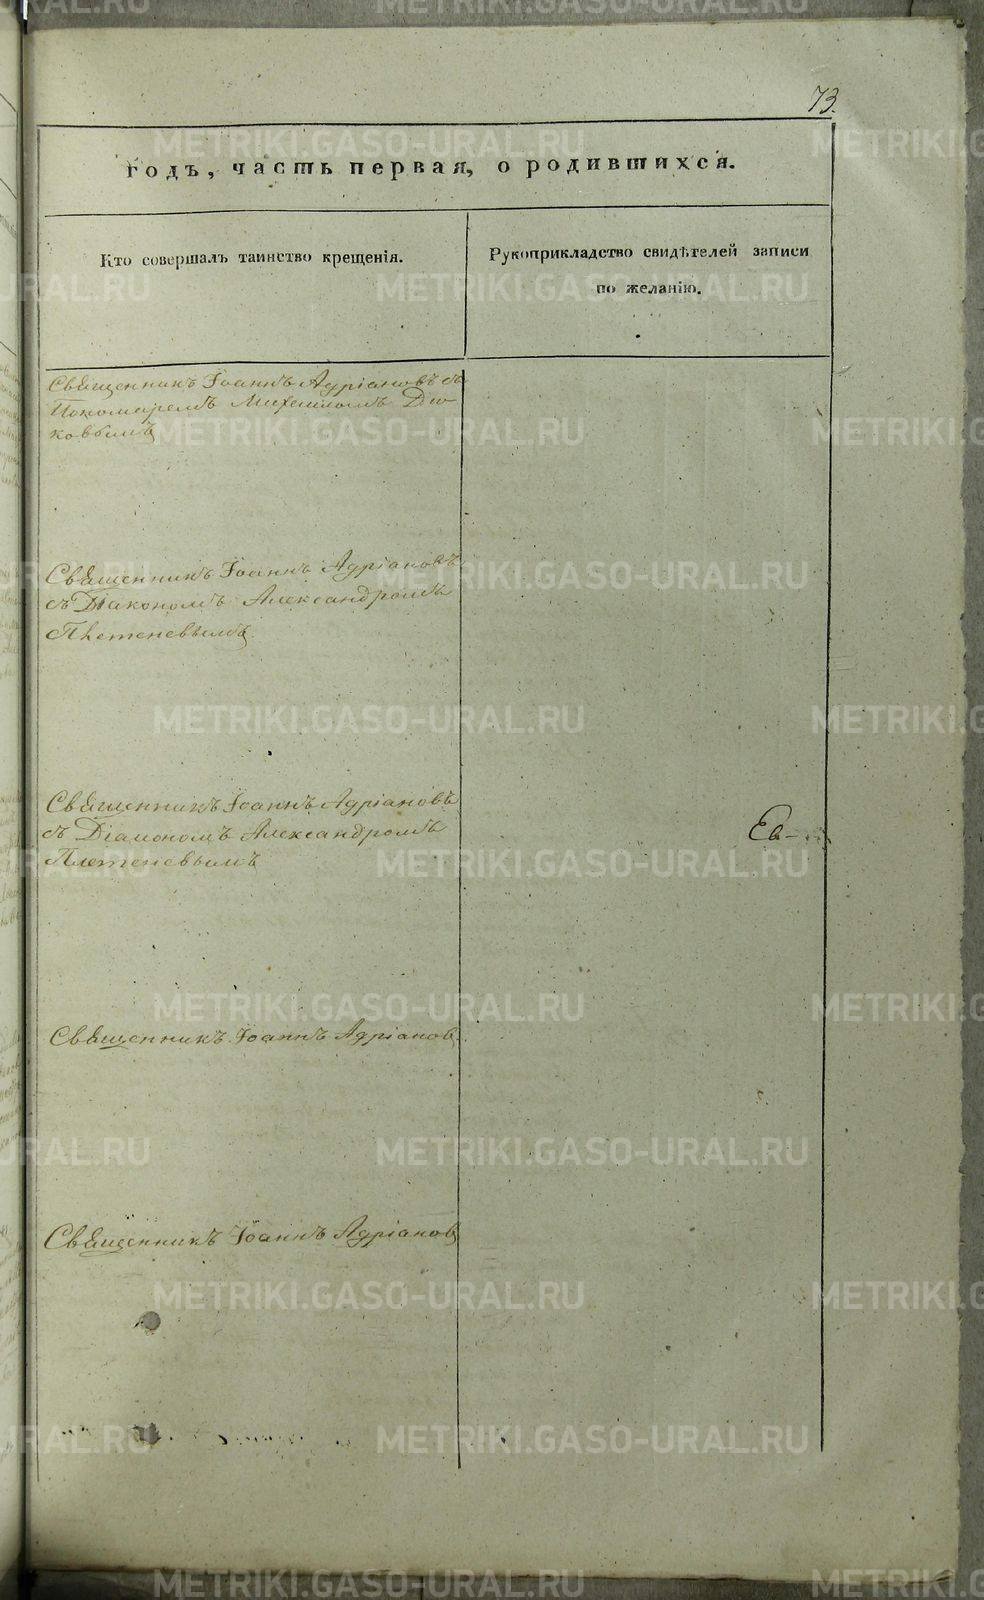 73.
годъ, часть первая, о родившихся.
Кто совершалъ таинство крещенія.
Рукоприкладство свидѣтелей записи
по желанію.
Священникъ Іоаннъ Адріановъ съ
Пономаремъ Михаиломъ
ковымъ
Священникъ Іоаннъ Адріановъ
съ Діакономъ Александромъ
Плетеневымъ
Священникъ Іоаннъ Адріановъ
съ Діакономъ Александромъ
Плетеневымъ
Ев-
Священникъ Іоаннъ Адріановъ
Священникъ Іоаннъ Адріановъ
METRIKI.GASO-URAL.RU